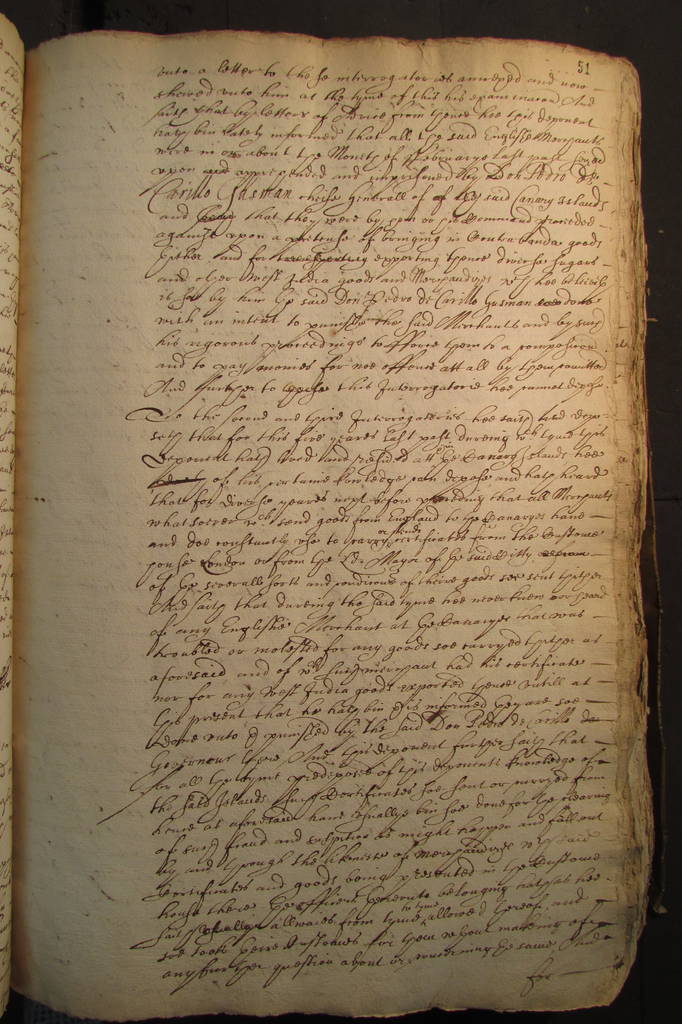 51
unto a letter to these interrogatories annexed and now
shewed unto him at the tyme of this his examinacon And
saith that by letters of Advice from thence hee this deponent
hath bin lately informed that all the said English Merchants
were in or about the Moneth of February last past seized
upon and apprehended and imprisoned by Don Pedro de
Carillo Gusman cheife Generall of the said Canary Islands
and that they were by his command proceeded
against upon a pretense of bringing in Contrabanda goods
thither and for exporting thence diverse Sugars
and other West India goods and Merchandizes wch hee beleiveth
is by him the said Don Pedro de Carillo Gusman done
with an intent to punish the said Merchants and by such
his rigorous proceedings to force them to a composicon
and to pay monies for noe offence att all by them comitted
And further to this Interrogatorie hee cannot depose.
To the second and third Interrogatories hee saith and depo-
seth that for this five yeares last past dureing wch tyme this
deponent hath lived and resided att the Canary Islands hee
of his certaine knowledge can depose and hath heard
that for diverse yeares next before preceding that all Merchants
what soever wch send goods from England to the Canaryes have
and doe constantly use to carry or send certificates from the Custome
house London or from the Ld. Mayor of the said Citty
of the severall sorts and condicons of theire goods soe sent thither
And saith that dureing the said tyme hee never knew or heard
of any English Merchant at the Canaryes that was
troubled or molested for any goods soe carryed thither as
aforesaid and of wch such merchant had his certificate
nor for any West India goods exported thence untill at
this present that hee hath bin informed they are soe
done unto & punished by the said Don Pedro de Carillo de
Governour there And this deponent further saith that
for all the tyme predeposed of this deponents knowledge of
the said Islands such Certificates soe sent or carryed from
hence as aforesaid have usually bin soe done for the cleareing
of such fraud and suspition as might happen and fall out
by and through the likenesse of merchandizes wch said
Certificates and goods being presented in the Custome
house there the officers thereunto belonging hath hee
saith usually allwaies from tyme to tyme allowed thereof and
soe tooke theire Customes for them without makeing of
any further question about or concerning the same And
for